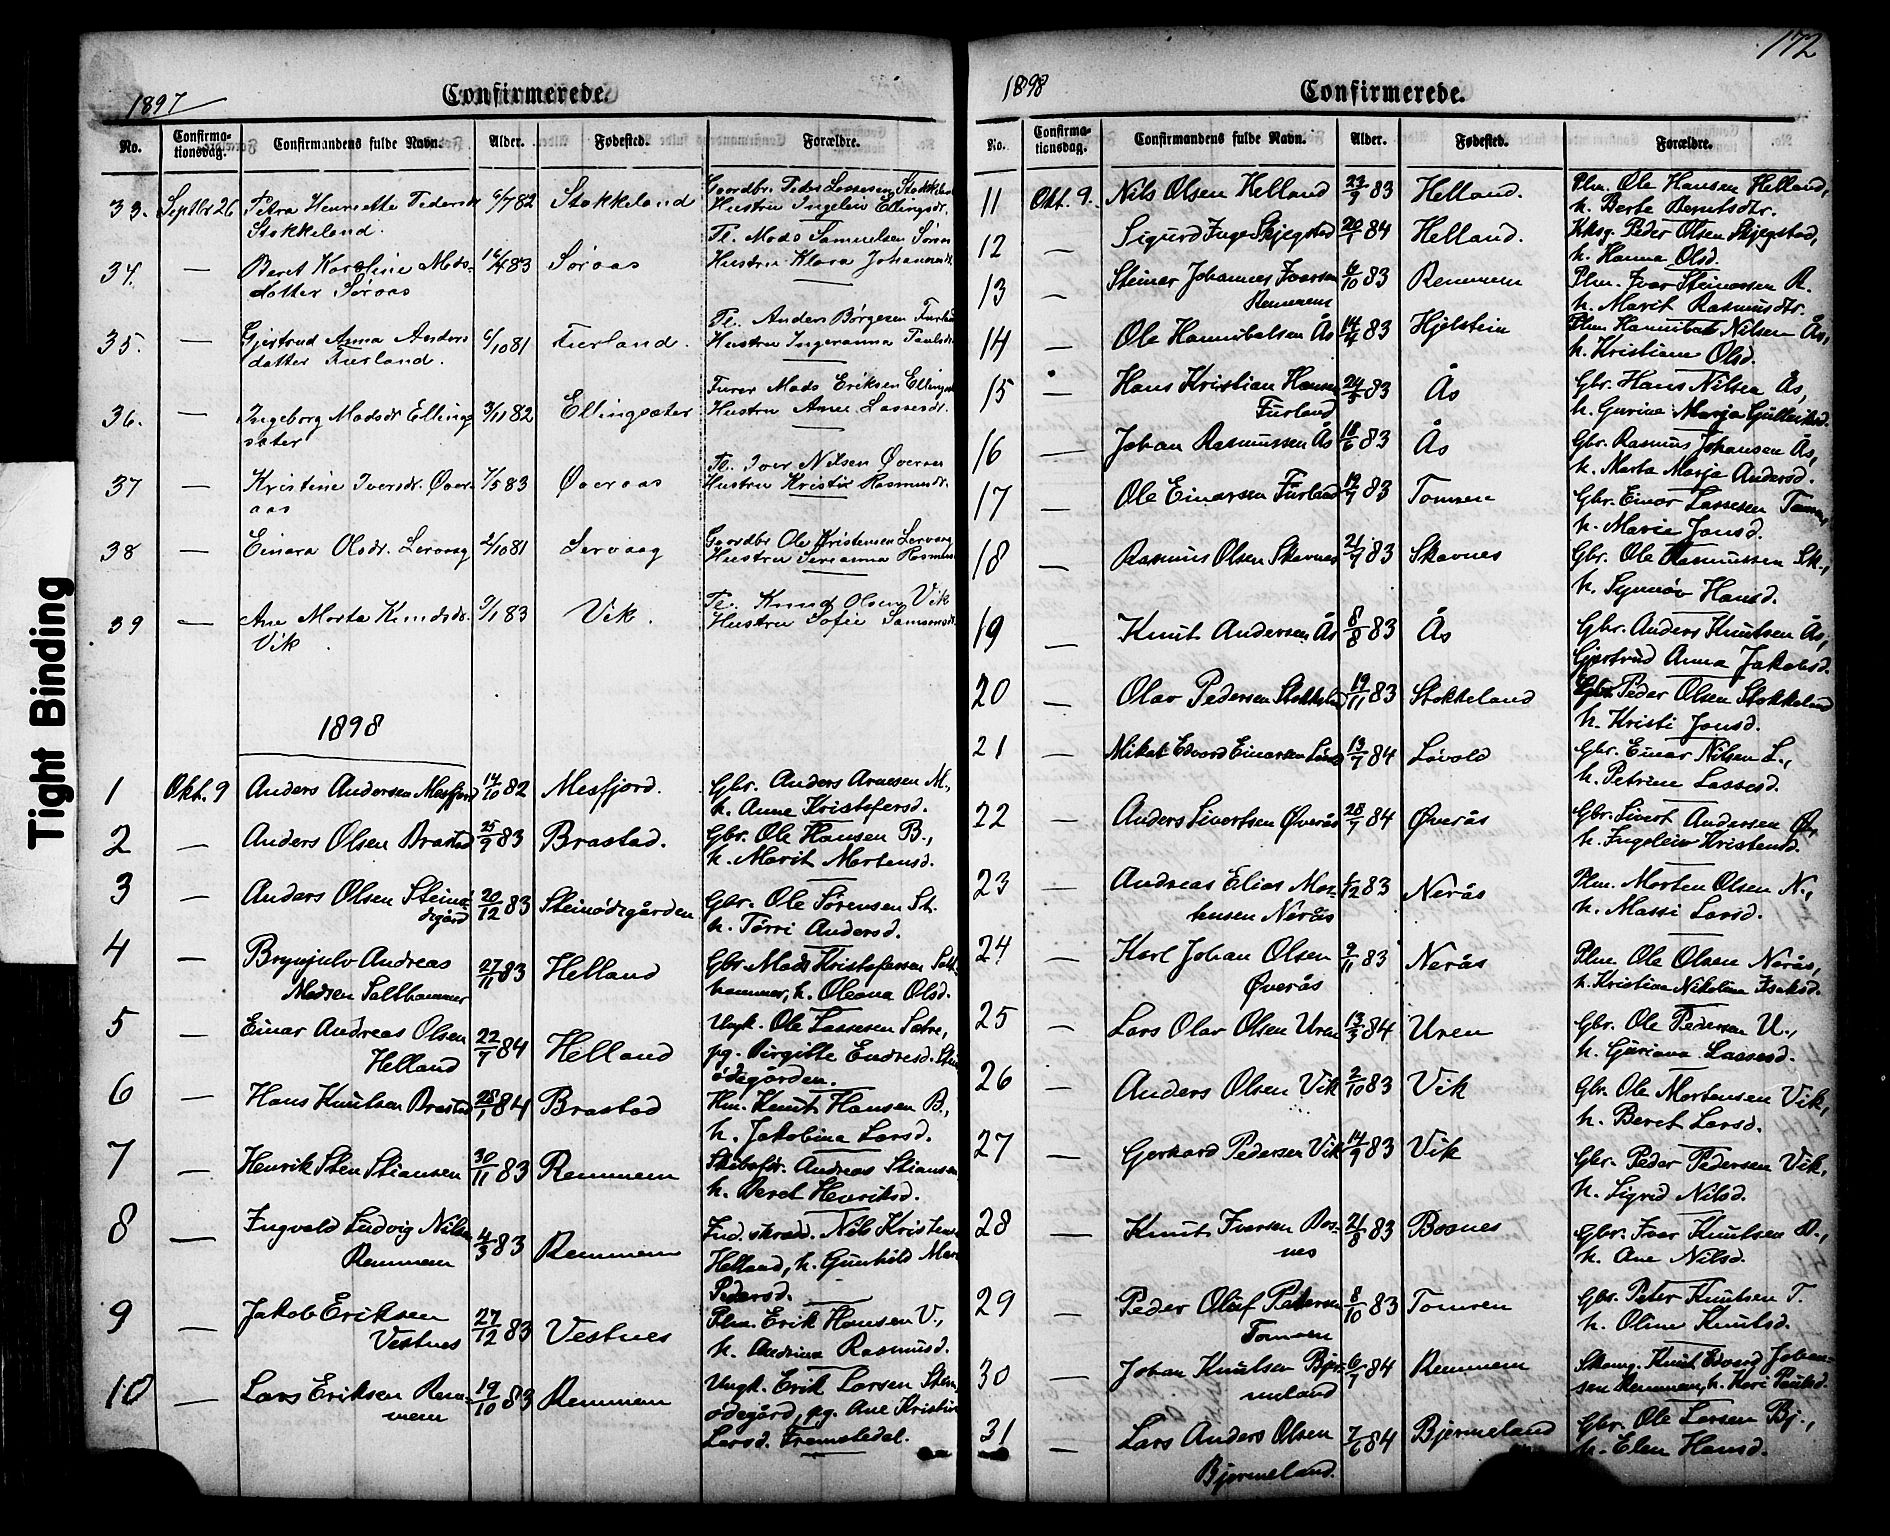 172
1897
Confirmerede.
No. Confirma-tionsdag. Confirmandens fulde Navn. Alder. Fødested. Forældre.
33. Septbr 26 Petra Henriette Pedersdr 6/7 82 Stokkeland Gaardbr. Peder Lassesen Stokkeland
Stokkeland. Hustru Ingeleiv Ellingsdr.
34. — Beret Karoline Mads- 16/4 83 Søraas Tl. Mads Samuelsen
datter Søraas Hustru Klara Johannesdr
35. — Gjertrud Anna Anders 6/10 81 Furland. Tl. Anders Børgesen
datter Furland. Hustru Ingeranna Paulsdr
36. — Ingeborg Madsdr. Ellings 3/11 82 Ellingsæter Furer Mads Eriksen Ellings
sæter Hustru Anne Lassesdr.
37 — Kristine Iversdr. Øver 7/5 83 Øveraas Tl. Iver Nilsen Øveraas
aas Hustru Kristi Rasmusdr.
38 — Einara Olsdr. Lervaag 2/10 81 Lervaag Gaardbr Ole Kristensen Lervaag
Hustru Serianna Rasmus
39 — Ane Marta Knudsdr. 9/1 83 Vik. Tl. Knud Olsen Vik
Vik Hustru Sofie Samsonsdr.
1898
1 Okt. 9 Anders Andersen Mesfjord 14/10 82 Mesfjord. Gbr. Anders Arnesen M.,
h. Anne Kristofersd.
2 — Anders Olsen Brastad 25/9 83 Brastad. Gbr. Ole Hansen B.,
h. Marit Mortensd.
3 — Anders Olsen Steinø- 20/12 83 Steinødegården Gbr. Ole Sørensen St.
degård h. Tørri Andersd.
4 — Brynjulv Andreas 27/11 83 Helland Gbr. Mads Kristofersen Salt-
Madsen Salthammer hammer, h. Oleana Olsd.
5 — Einar Andreas Olsen 22/7 84 Helland Ungk. Ole Lassesen Sætre,
Helland pg. Birgitte Endresd. Stein
ødegården.
6 — Hans Knutsen Brastad 28/1 84 Brastad Km. Knut Hansen B.,
h. Jakobina Larsd.
7 — Henrik Sten Stiansen 30/11 83 Remmem Skibsfør. Andreas Stiansen
h. Beret Henriksd.
8 — Ingvald Ludvig Nilsen 4/3 83 Remmem Ind. skræd. Nils Kristensen
Remmem Helland, h. Gunhild
Pedersd.
9 — Jakob Eriksen 27/12 83 Vestnes Plm. Erik Hansen V.,
Vestnes h. Andrina Rasmusd.
10 — Lars Eriksen Rem- 19/10 83 Remmem Ungk. Erik Larsen Stein
mem ødegård, pg. Ane Kristine
Larsd. Fremstedal.
1898
Confirmerede.
No. Confirma-tionsdag. Confirmandens fulde Navn. Alder. Fødested. Forældre.
11 Okt. 9. Nils Olsen Helland 23/9 83 Helland. Plm. Ole Hansen Helland,
h. Berte Berntsdtr.
12 — Sigurd Inge Skjegstad 20/1 84 Helland. Kksg. Peder Olsen Skjegstad,
h. Hanna Olsd.
13 — Steinar Johannes Iversen 6/10 83 Remmem Plm. Ivar Steinarsen R.
Remmem h. Marit Rasmusdtr.
14 — Ole Hannibalsen Ås 14/4 83 Hjelstein Plm. Hannibal Nilsen Ås,
h. Kristiane Olsd.
15 — Hans Kristian Hansen 83 Ås Gbr. Hans Nilsen Ås,
Furland h. Gurine Marja Gulleiksd.
16 — Johan Rasmussen Ås 18/6 83 Ås Gbr. Rasmus Johansen Ås,
h. Marta Marja Andersd.
17 — Ole Einarsen Furland 83 Tomren Gbr. Einar Lassesen
h. Marie Jonsd.
18 — Rasmus Olsen Skavnes 21/7 83 Skavnes Gbr. Ole Rasmussen Sk.,
h. Synnøv Hansd.
19 — Knut Andersen Ås 8/8 83 Ås Gbr. Anders Knutsen Ås,
Gjertrud Anna Jakobsd.
20 — Olav Pedersen Stokkeland 19/11 83 Stokkeland Gbr. Peder Olsen Stokkeland
h. Kristi Jonsd.
21 — Mikal Edvard Einarsen 13/7 84 Løvold Gbr. Einar Nilsen L.,
h. Petrine Lassesd.
22 — Anders Sivertsen Øverås 28/7 84 Øverås Gbr. Sivert Andersen Ø.,
h. Ingeleiv Kristensd.
23 — Andreas Elias Mor- 83 Nerås Plm. Morten Olsen N.,
tensen Nerås h. Massi Larsd.
24 — Karl Johan Olsen 2/11 83 Nerås Plm. Ole Olsen Nerås,
Øverås h. Kristine Nikolina Isaksd.
25 — Lars Olav Olsen Uren 13/3 84 Uren Gbr. Ole Pedersen U.,
h. Guriana Lassesd.
26 — Anders Olsen Vik 2/10 83 Vik Gbr. Ole Mortensen Vik,
h. Beret Larsd.
27 — Gerhard Pedersen Vik 14/9 83 Vik Gbr. Peder Pedersen Vik,
h. Sigrid Nilsd.
28 — Knut Iversen Bos- 21/8 83 Bosnes Gbr. Ivar Knutsen B.,
nes h. Ane Nilsd.
29 — Peder Oluf Petersen 8/10 83 Tomren Gbr. Peter Knutsen T.
Tomren h. Oline Knutsd.
30 — Johan Knutsen Bjør- 6/7 84 Remmem Skomg. Knut Edvard Johan-
meland sen Remmem, h. Kari Paulsd.
31 — Lars Anders Olsen 7/6 84 Bjermeland Gbr. Ole Larsen Bj.,
Bjermeland. h. Elen Hansd.
Tight Binding